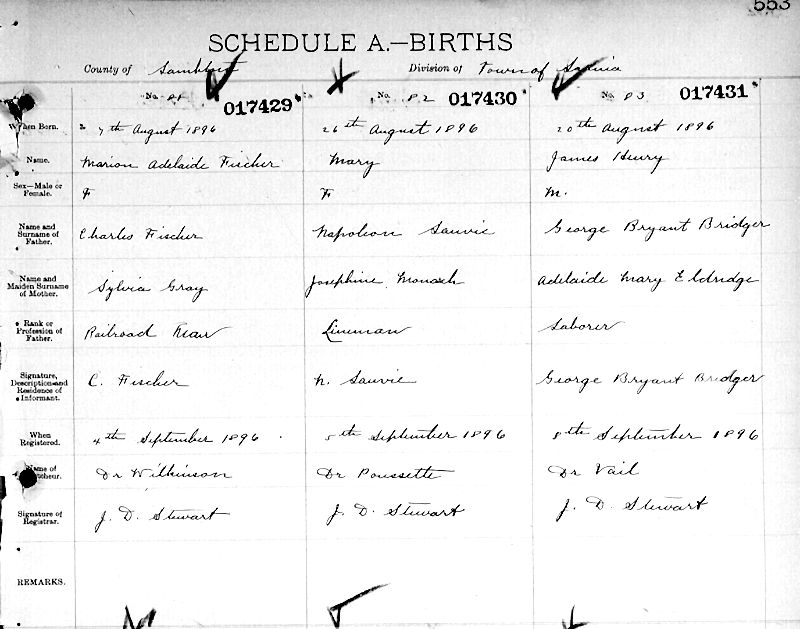 553
SCHEDULE A.—BIRTHS
County of Lambton Division of Town of Sarnia
No. 81 017429 No. 82 017430 No. 83 017431
When Born. 7th August 1896 26th August 1896 20th August 1896
Name. Marion Adelaide Fischer Mary James Henry
Sex—Male or Female. F F M.
Name and Surname of Father. Charles Fischer Napoleon Sauvie George Bryant Bridger
Name and Maiden Surname of Mother. Sylvia Gray Josephine Adelaide Mary Eldridge
Rank or Profession of Father. Railroad Man Lineman Laborer
Signature, Description and Residence of Informant. C. Fischer N. Sauvie George Bryant Bridger
When Registered. 4th September 1896 5th September 1896 8th September 1896
Name of Dr Wilkinson Dr Poussette Dr Vail
Signature of Registrar. J. D. Stewart J. D. Stewart J. D. Stewart
REMARKS.